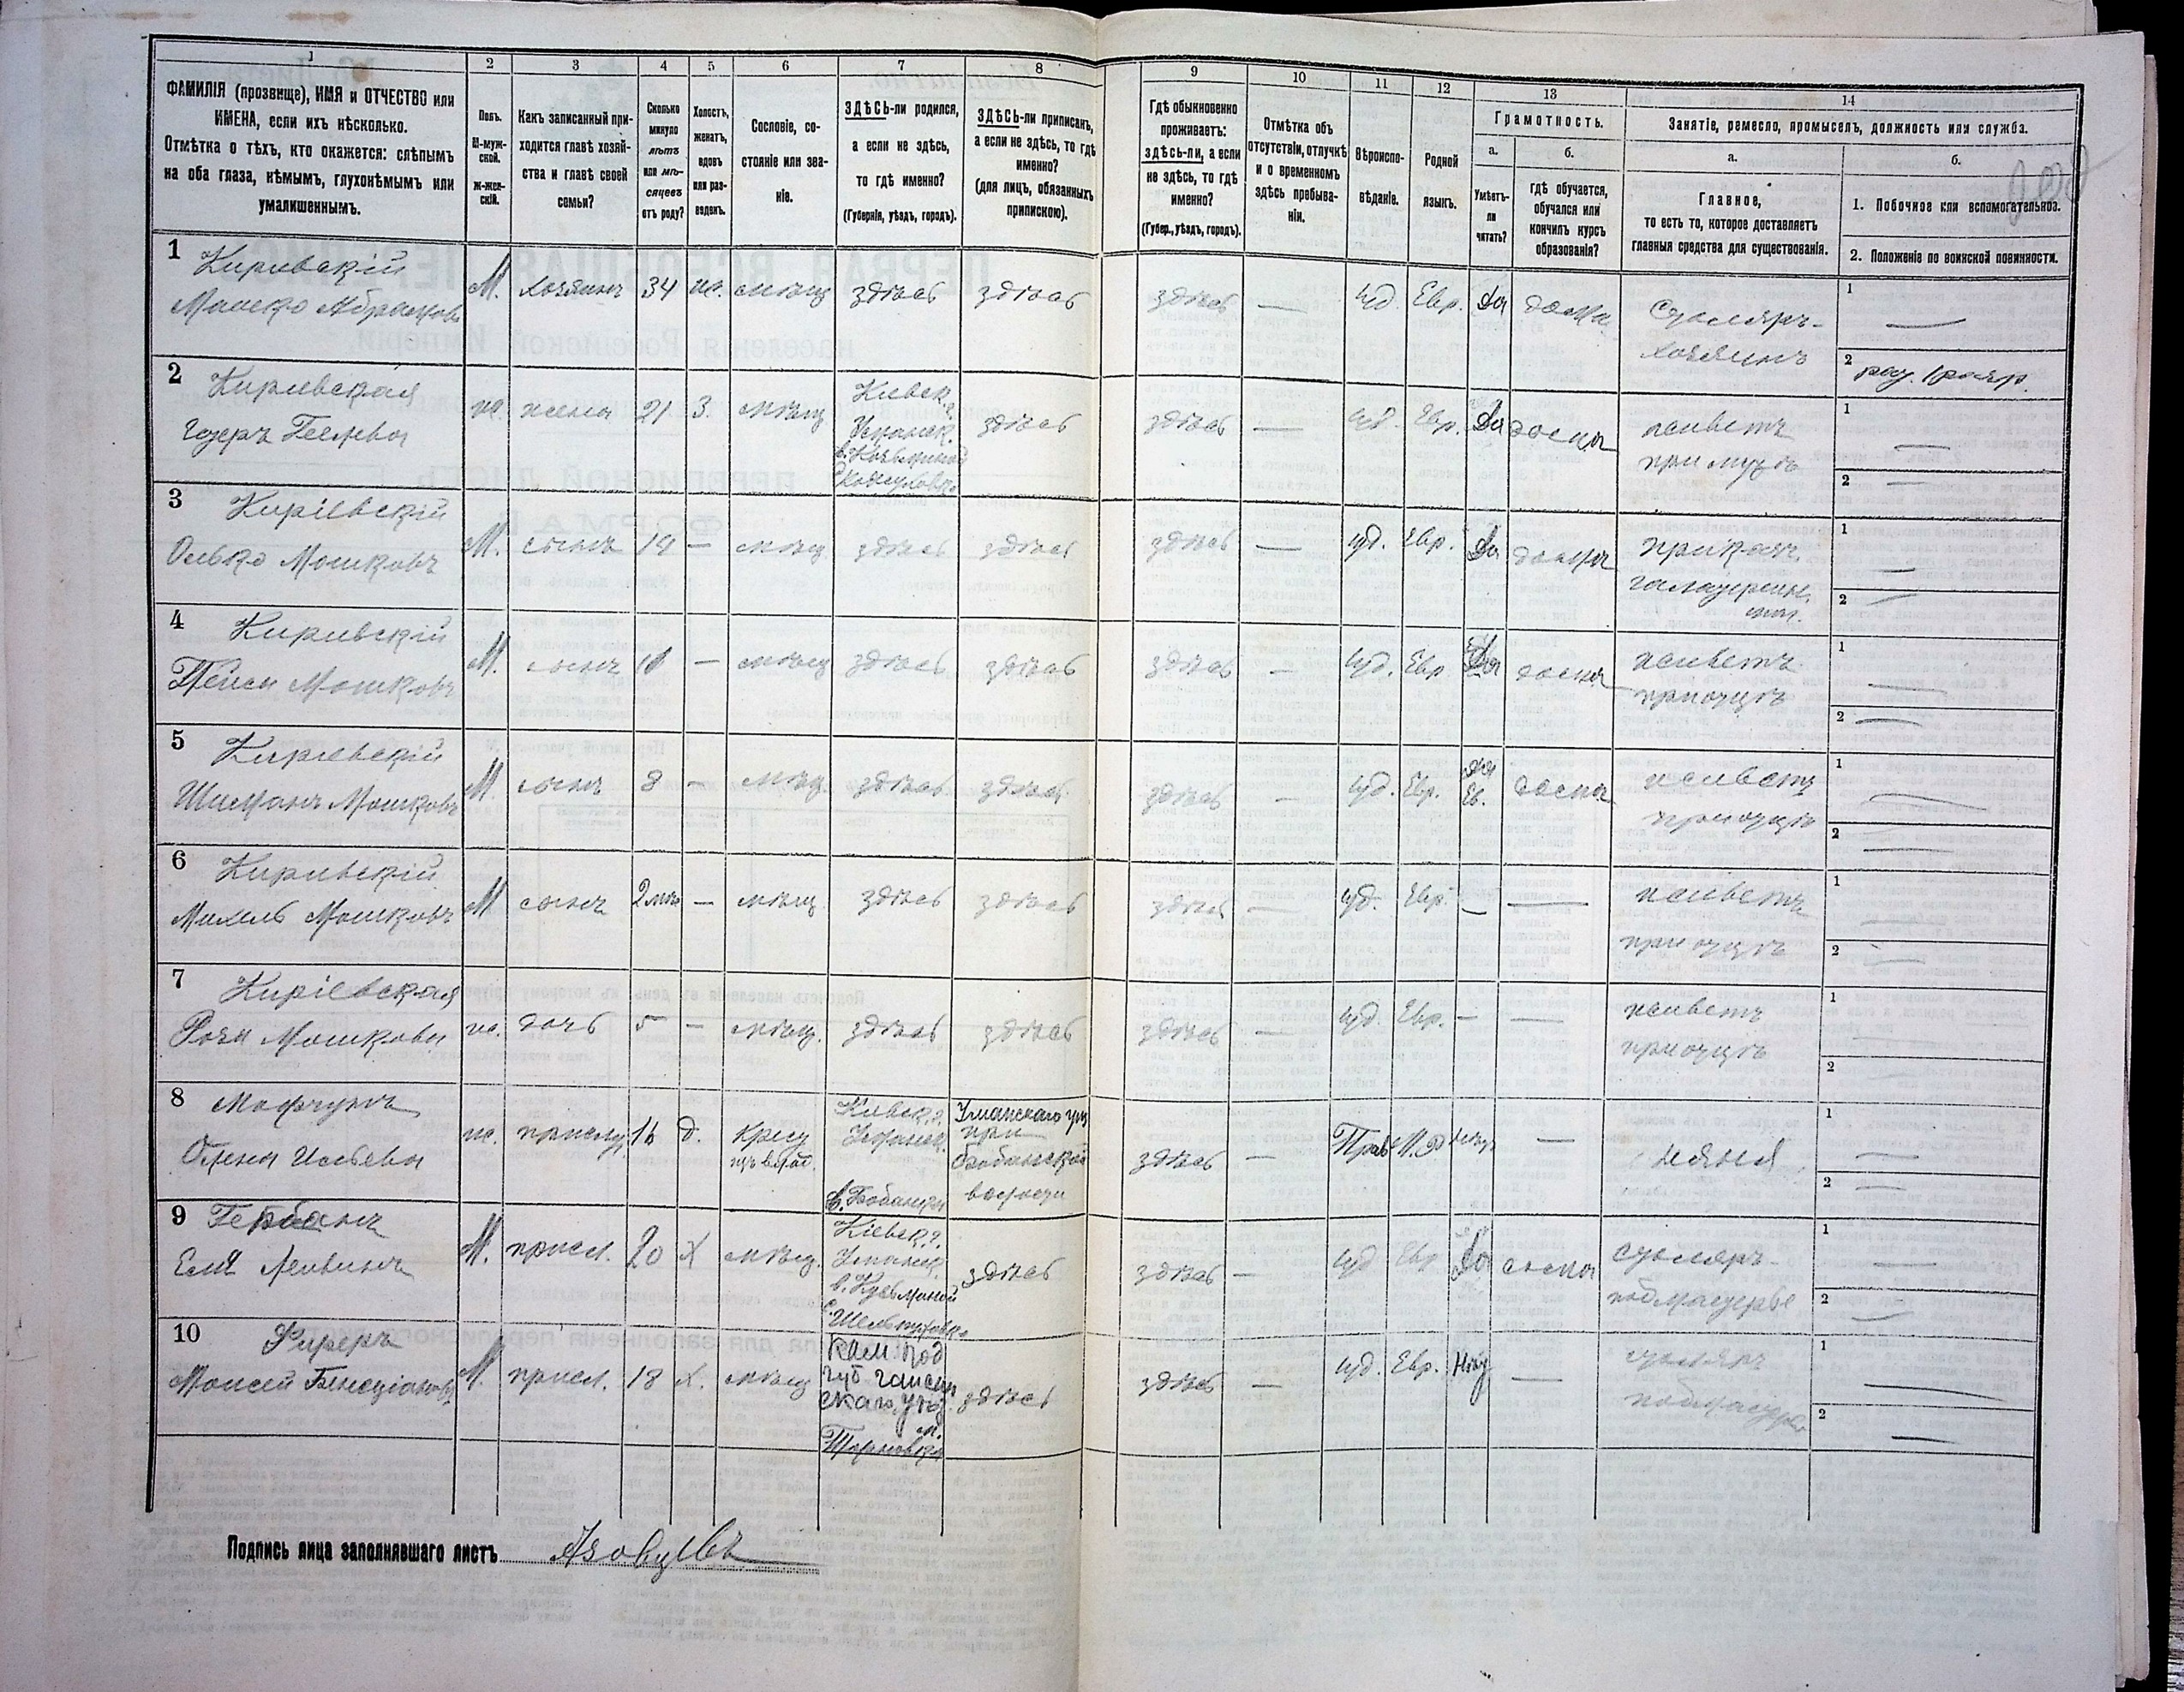 1 2 3 4 5 6 7 8 9 10 11 12 13 14
ФАМИЛІЯ (прозвище), ИМЯ и ОТЧЕСТВО или
ИМЕНА, если ихъ нѣсколько.
Отмѣтка о тѣхъ, кто окажется: слѣпымъ
на оба глаза, нѣмымъ, глухонѣмымъ или
умалишеннымъ.
Полъ.
М-муж-
ской.
Ж-жен-
скій.
Какъ записанный при-
ходится главѣ хозяй-
ства и главѣ своей
семьи?
Сколько
минуло
лѣтъ
или мѣ-
сяцевъ
отъ роду?
Холостъ,
женатъ,
вдовъ
или раз-
веденъ.
Сословіе, со-
стояніе или зва-
ніе.
ЗДѢСЬ-ли родился,
а если не здѣсь,
то гдѣ именно?
(Губернія, уѣздъ, городъ).
ЗДѢСЬ-ли приписанъ,
а если не здѣсь, то гдѣ
именно?
(для лицъ, обязанныхъ
припискою).
Гдѣ обыкновенно
проживаетъ:
ЗДѢСЬ-ли, а если
не здѣсь, то гдѣ
именно?
(Губер., уѣздъ, городъ).
Отмѣтка объ
отсутствіи, отлучкѣ
и о временномъ
здѣсь пребыва-
ніи.
Вѣроиспо-
вѣданіе.
Родной
языкъ.
Грамотность.
а.
Умѣетъ-
ли
читать?
б.
гдѣ обучается,
обучался или
кончилъ курсъ
образованія?
Занятіе, ремесло, промыселъ, должность или служба.
а.
Главное,
то есть то, которое доставляетъ
главныя средства для существованія.
б.
1. Побочное или вспомогательное.
2. Положеніе по воинской повинности.
1 Киріевскій
Мошко Абрамовъ
М. хозяинъ 34 ж. мѣщ здѣсь здѣсь здѣсь — іуд. Евр. Да дома
Столяръ-
хозяинъ
1 —
2
2 Киріевская
Геллева
ж. жена 21 З. мѣщ
Кіевск. г.
Уманск.
здѣсь здѣсь — іуд. Евр. Да дома
живетъ
при мужѣ
1 —
2 —
3 Киріевскій
Мошковъ
М. сынъ 14 — мѣщ здѣсь здѣсь здѣсь — іуд. Евр. Да дома
приказч.
галантерейн.
1 —
2 —
4 Киріевскій
Пейси Мошковъ
М. сынъ — мѣщ здѣсь здѣсь здѣсь — іуд. Евр Да дома
живетъ
при отцѣ
1 —
2 —
5 Киріевскій
Шиманъ Мошковъ
М сынъ 8 — мѣщ. здѣсь здѣсь здѣсь — іуд. Евр. да
Ев. дома
живетъ
при отцѣ
1 —
2 —
6 Киріевскій
Михель Мошковъ
М сынъ 2 мѣс — мѣщ. здѣсь здѣсь здѣсь — іуд. Евр. — —
живетъ
при отцѣ
1 —
2 —
7 Киріевская
Рози Мошкова
ж. дочь 5 — мѣщ. здѣсь здѣсь здѣсь — іуд. Евр. — —
живетъ
при отцѣ
1
2
8
Олена Ильева
ж. прислуг 16 д. Крест
изъ влад.
Кіевск. г.
Уманск.
Уманскаго уѣз
при
волости
здѣсь — Прав нѣтъ —
няня
1 —
2 —
9
Еля Лейвинъ
М. присл. 20 Х мѣщ.
Кіевск. г.
Уманск.
в. Кузьминой
здѣсь здѣсь — іуд Евр Да дома
столяръ-
подмастерье
1 —
2 —
10 Фиферъ
Моисей
М. присл. 18 х. мѣщ
Кам. Под
губ гайсин
скаго уѣз.
м.
Терновка
здѣсь здѣсь — іуд. Евр. Нѣт —
столяръ
подмастер.
1 —
2 —
Подпись лица заполнявшаго листъ